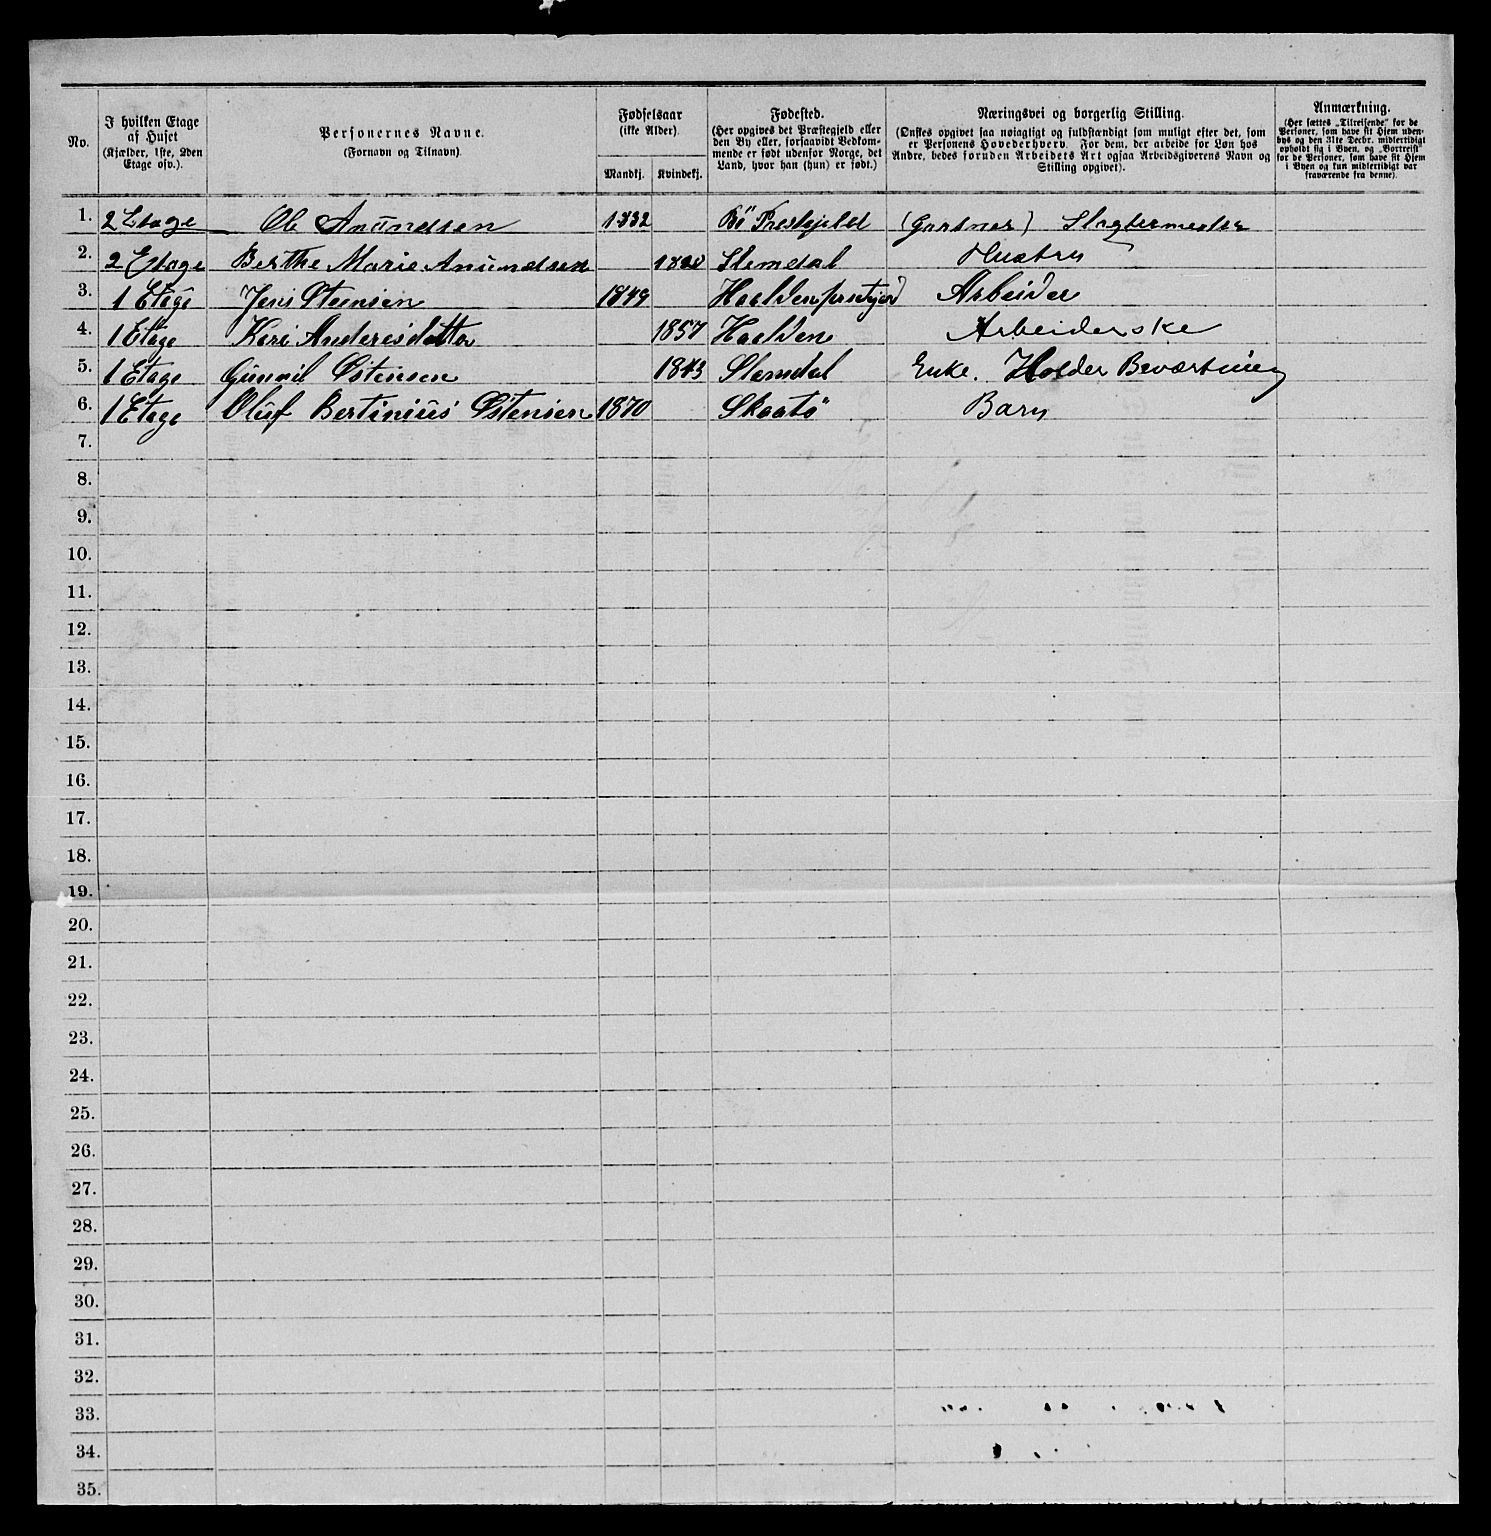 No.
I hvilken Etage
af Huset
(Kjælder, 1ste, 2den
Etage osv.).
Personernes Navne.
(Fornavn og Tilnavn).
Fødselsaar
(ikke Alder).
Mandkj. Kvindekj.
Fødested.
(Her opgives det Præstegjeld eller
den By eller, forsaavidt Vedkom-
mende er født udenfor Norge, det
Land, hvor han (hun) er født.)
Næringsvei og borgerlig Stilling.
(Ønskes opgivet saa nøiagtigt og fuldstændigt som muligt efter det, som
er Personens Hovederhverv. For dem, der arbeide for Løn hos
Andre, bedes foruden Arbeidets Art ogsaa Arbeidsgiverens Navn og
Stilling opgivet).
Anmærkning.
(Her sættes „Tilreisende“ for de
Personer, som have sit Hjem uden-
bys og den 31te Decbr. midlertidigt
opholdt sig i Byen, og „Bortreist“
for de Personer, som have sit Hjem
i Byen og kun midlertidigt var
fraværende fra denne).
1. 2 Etage Ole Anundsen 1832 Bö Prestejeld (Gartner) Slagtermester
2. 2 Etage Berthe Marie Anundsen Slemdal Hustru
3. 1 Etage Jens Steinsen 1849 Arbeider
4. 1 Etage Kari Andersdatter 1857 Haelden Arbeiderske
5. 1 Etage Gunnil Östensen 1843 Slemdal Enke. Holder Beværtning
6. 1 Etage Oluf Bertinius Östensen 1870 Skaatö Barn
7.
8.
9.
10.
11.
12.
13.
14.
15.
16.
17.
18.
19.
20.
21.
22.
23.
24.
25.
26.
27.
28.
29.
30.
31.
32.
33.
34.
35.